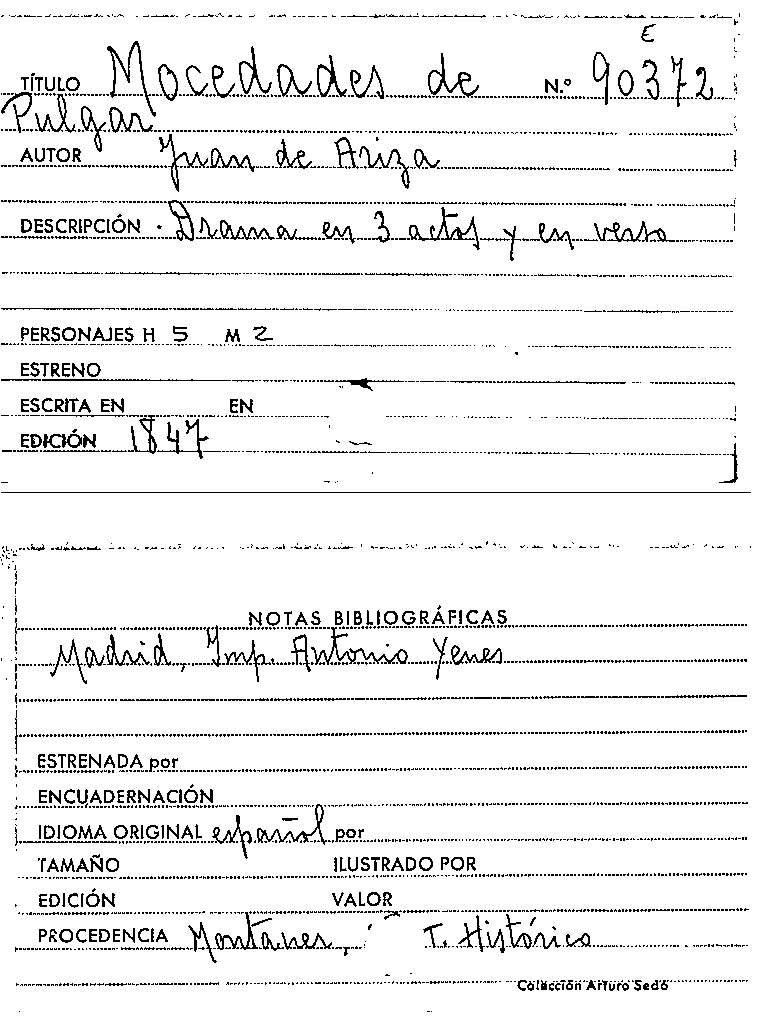 E
TÍTULO Mocedades de N.º 90372
Pulgar
AUTOR Juan de Ariza
DESCRIPCIÓN · Drama en 3 actos y en verso
PERSONAJES H 5 M 2
ESTRENO
ESCRITA EN EN
EDICIÓN 1847
NOTAS BIBLIOGRÁFICAS
Madrid, Imp. Antonio Yenes
ESTRENADA por
ENCUADERNACIÓN
IDIOMA ORIGINAL español por
TAMAÑO ILUSTRADO POR
EDICIÓN VALOR
PROCEDENCIA Montaner, T. Histórico
Colección Arturo Sedó